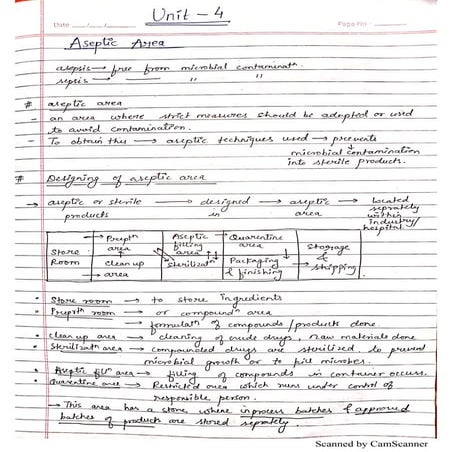 Unit - 4
Date __/__/__
Page No:
Aseptic Area
asepsis → free from microbial contaminatn.
sepsis → " "
# aseptic area
- an area where strict measures should be adopted or used
to avoid contamination.
- To obtain this → aseptic techniques used → prevents
microbial contamination
into sterile products.
# Designing of aseptic area
→ aseptic or sterile → designed → aseptic → located
products in area seprately
within
industry/
hospital.
Store
Room
→ Prepn
area
clean up
→ area
Aseptic
filling
area
Sterilizatn
→ Quarentine
area
Packaging
& finishing
Storage
&
shipping
• Store room → to store ingredients
• Prepn room → or compoundn area
→ formulatn of compounds/products done.
• Clean up area → cleaning of crude drugs, raw materials done
• Sterilizatn area → compounded drugs are sterilized, to prevent
microbial growth or to kill microbes.
• Aseptic filln area → filling of compounds in container occurs.
• Quarentine area → Restricted area which runs under control of
responsible person.
→ This area has a store where inprocess batches & approved
batches of products are stored seprately.
Scanned by CamScanner